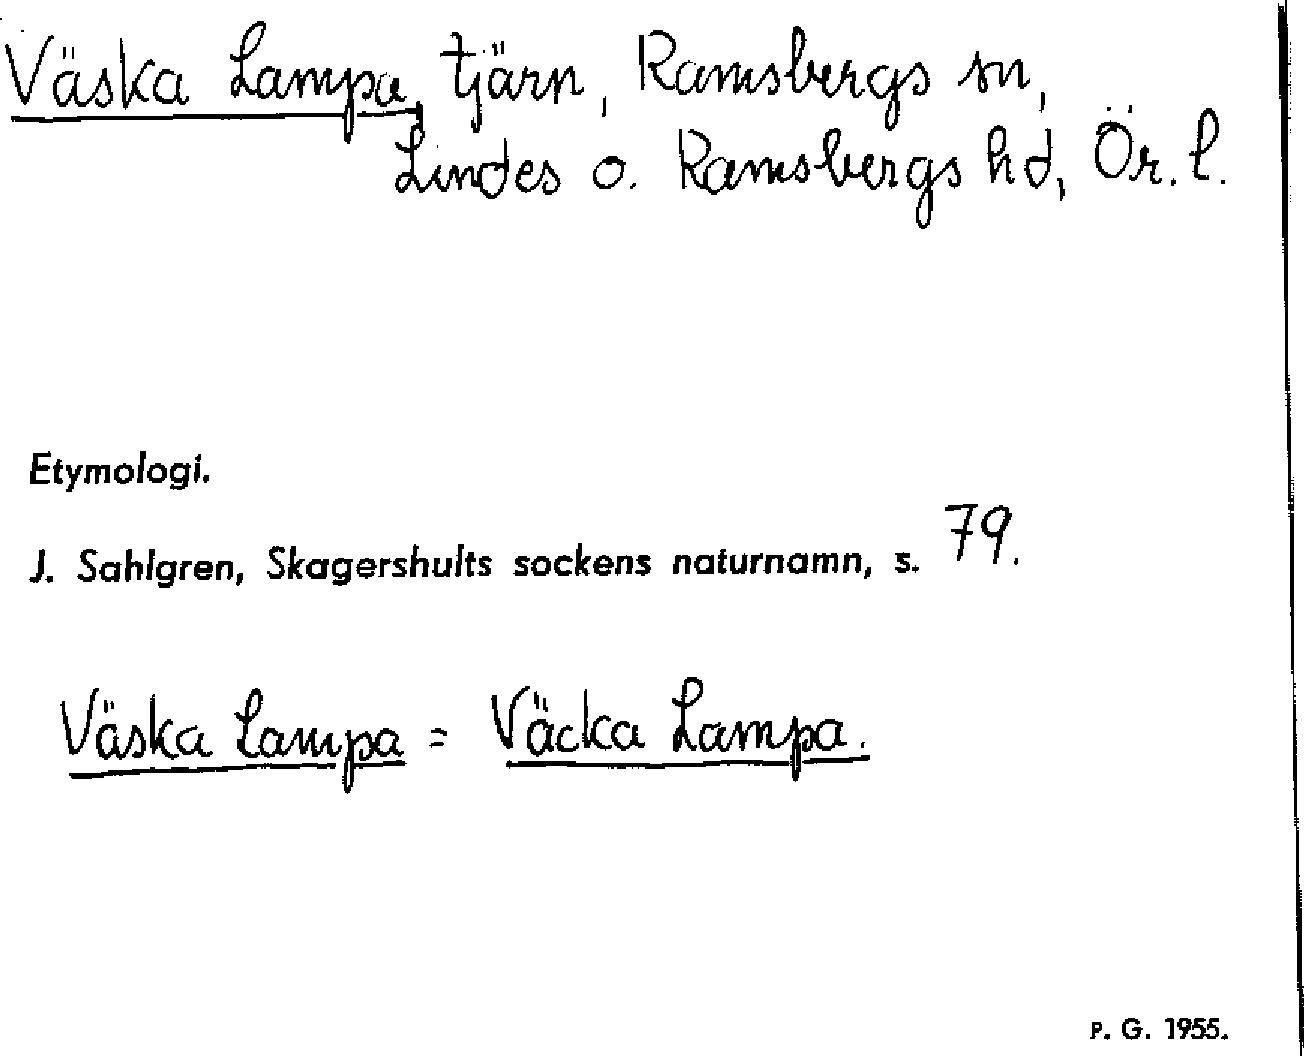 Väska Lampa, tjärn, Ramsbergs sn,
Lindes o. Ramsbergs hd, Ör. l.
Etymologi.
J. Sahlgren, Skagershults sockens naturnamn, s. 79.
Väska Lampa = Väcka Lampa.
P. G. 1955.